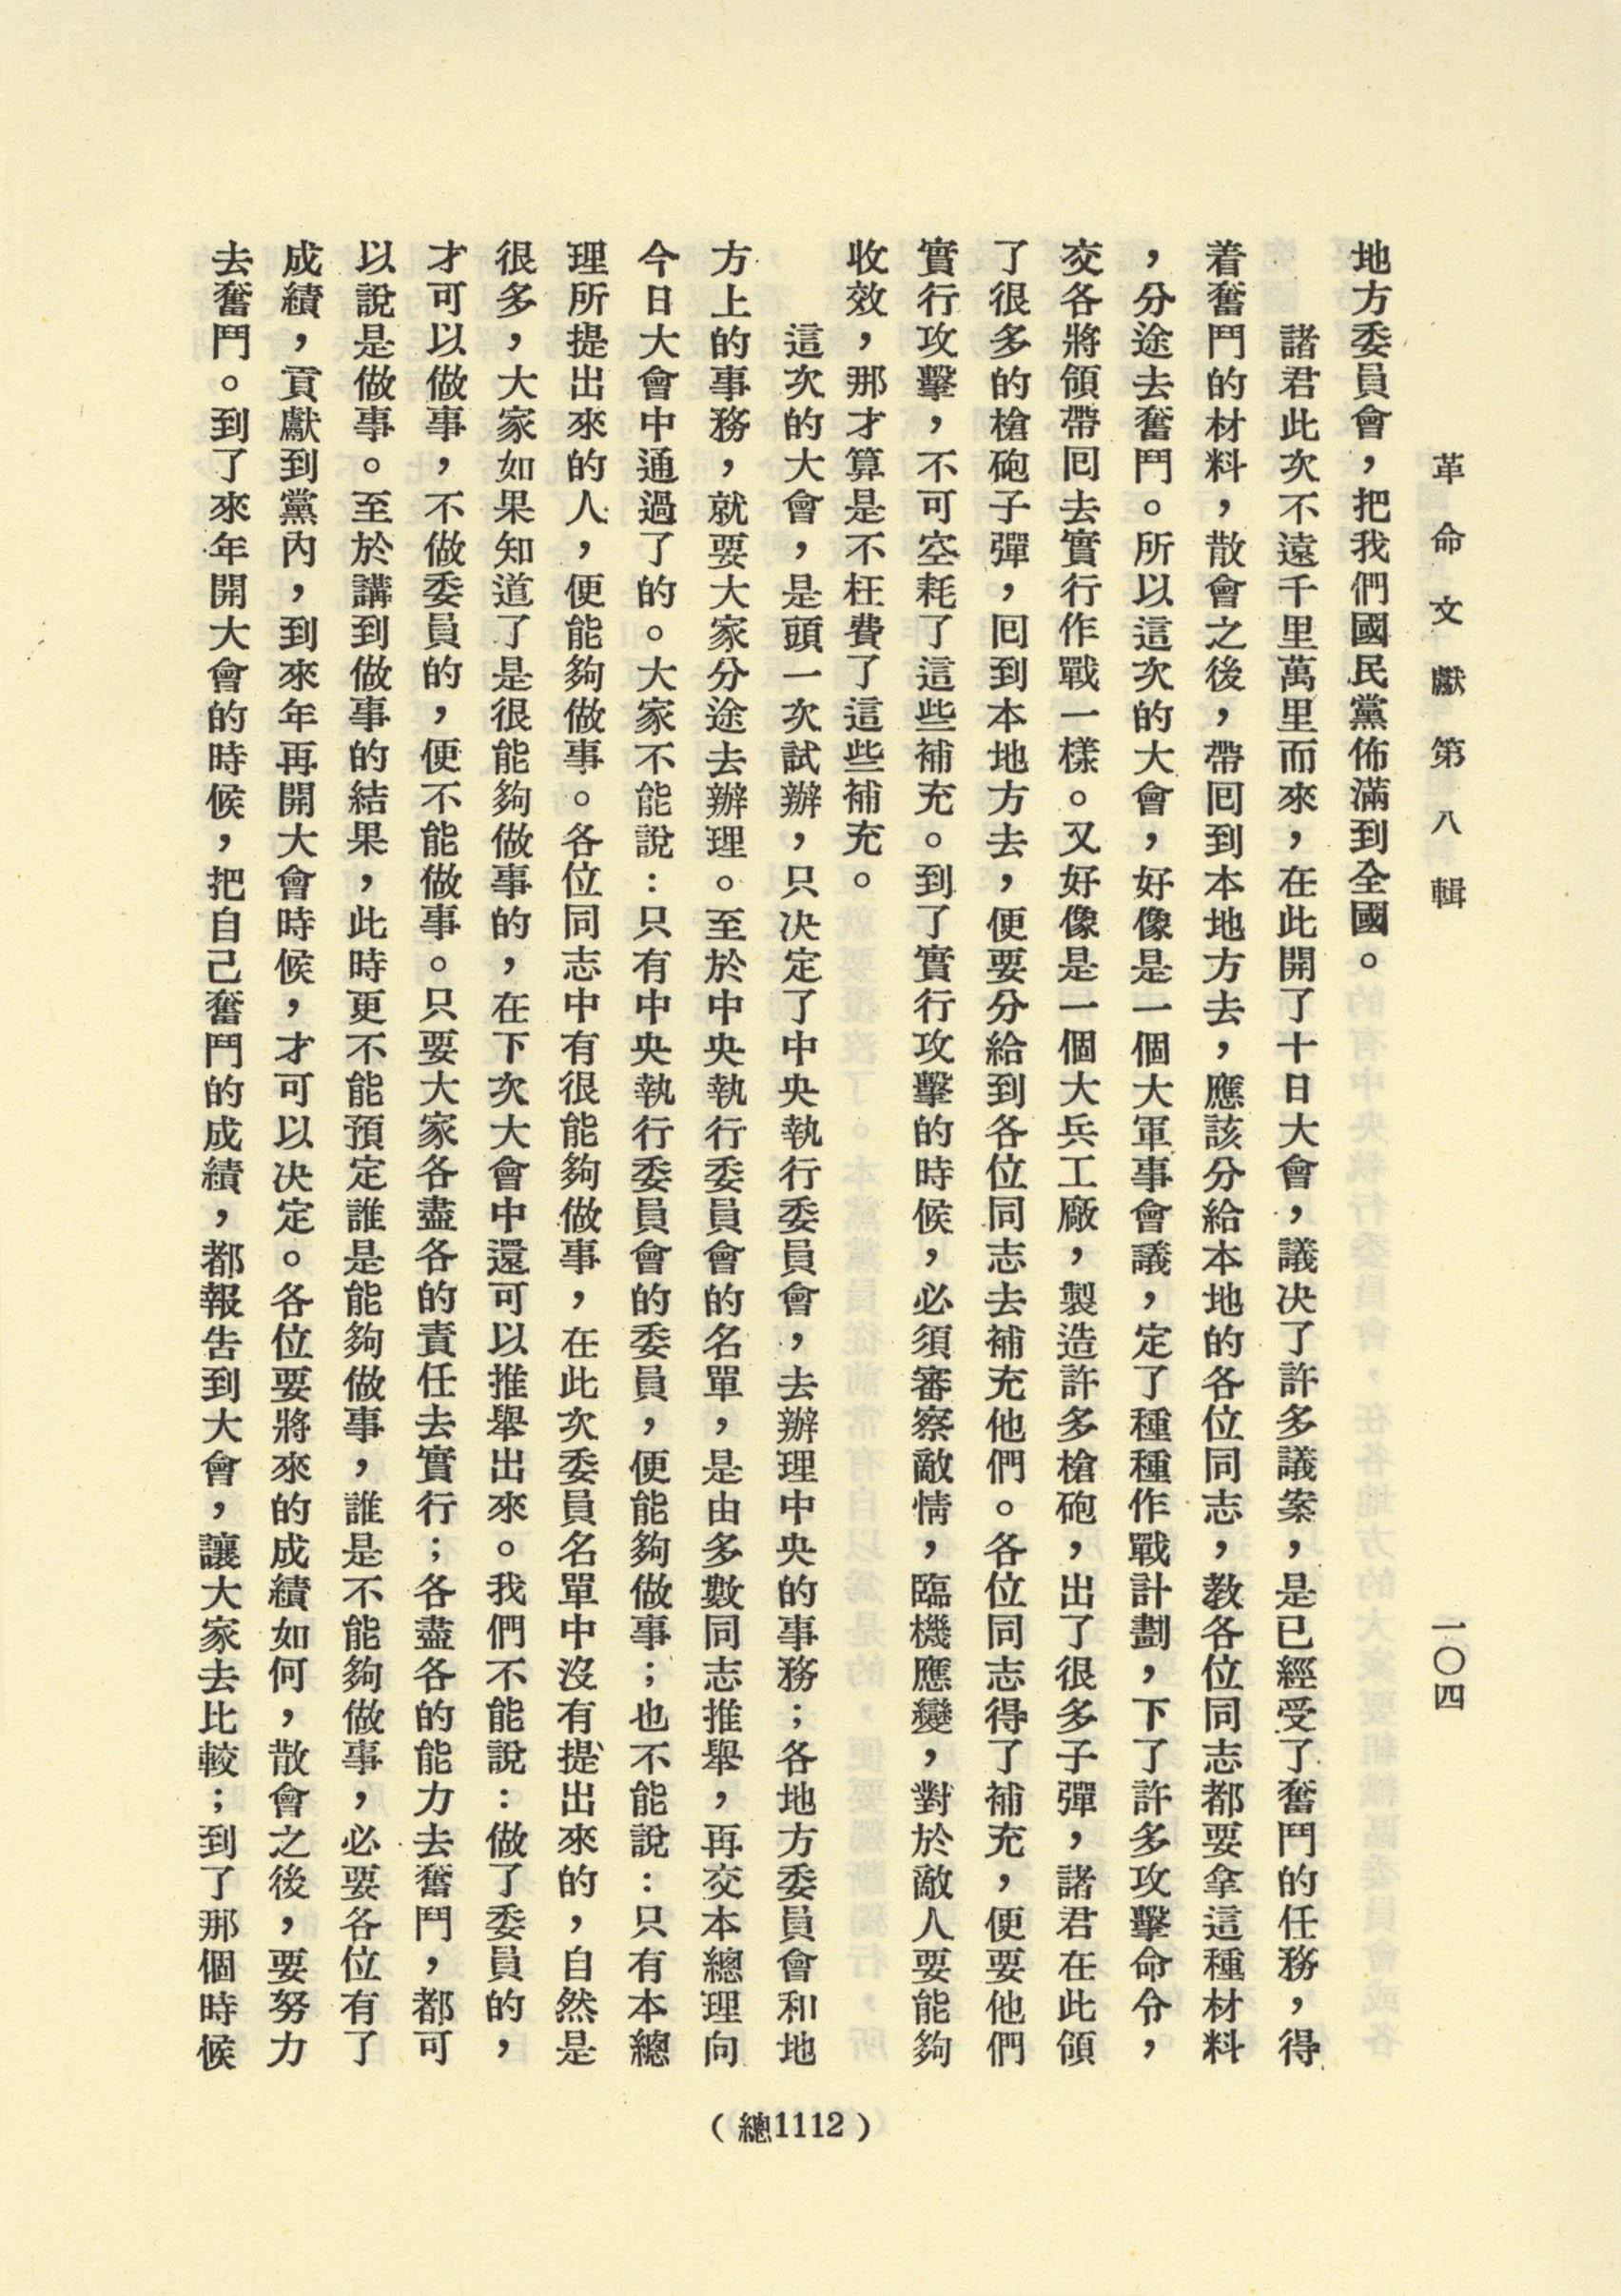 革命文獻第八輯
一〇四
地方委員會，把我們國民黨佈滿到全國。
諸君此次不遠千里萬里而來，在此開了十日大會，議決了許多議案，是已經受了奮鬥的任務，得
着奮鬥的材料，散會之後，帶囘到本地方去，應該分給本地的各位同志，教各位同志都要拿這種材料
，分途去奮鬥。所以這次的大會，好像是一個大軍事會議，定了種種作戰計劃，下了許多攻擊命令，
交各將領帶囘去實行作戰一樣。又好像是一個大兵工廠，製造許多槍砲，出了很多子彈，諸君在此領
了很多的槍砲子彈，囘到本地方去，便要分給到各位同志去補充他們。各位同志得了補充，便要他們
實行攻擊，不可空耗了這些補充。到了實行攻擊的時候，必須審察敵情，臨機應變，對於敵人要能夠
收效，那才算是不枉費了這些補充。
這次的大會，是頭一次試辦，只決定了中央執行委員會，去辦理中央的事務；各地方委員會和地
方上的事務，就要大家分途去辦理。至於中央執行委員會的名單，是由多數同志推舉，再交本總理向
今日大會中通過了的。大家不能說：只有中央執行委員會的委員，便能夠做事；也不能說：只有本總
理所提出來的人，便能夠做事。各位同志中有很能夠做事，在此次委員名單中沒有提出來的，自然是
很多，大家如果知道了是很能夠做事的，在下次大會中還可以推舉出來。我們不能說：做了委員的，
才可以做事，不做委員的，便不能做事。只要大家各盡各的責任去實行；各盡各的能力去奮鬥，都可
以說是做事。至於講到做事的結果，此時更不能預定誰是能夠做事，誰是不能夠做事，必要各位有了
成績，貢獻到黨內，到來年再開大會時候，才可以決定。各位要將來的成績如何，散會之後，要努力
去奮鬥。到了來年開大會的時候，把自己奮鬥的成績，都報告到大會，讓大家去比較；到了那個時候
（總1112）